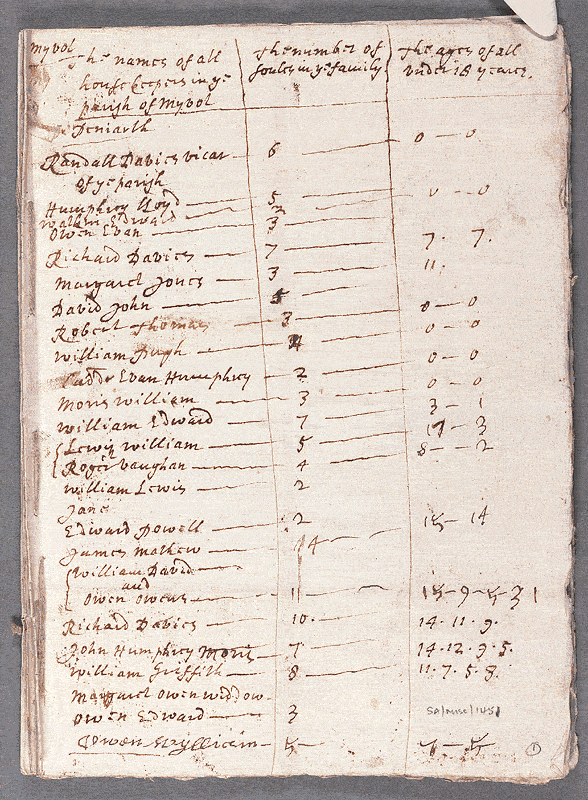 Myvol The names of all The number of The ages of all
housekeepers in ye soules in ye family under 18 yeares.
parish of Myvol
Deniarth
Randall Davies vicar 6 0 — 0
of ye parish
Humphrey lloyd 5 0 — 0
Edward
Owen Evan 3
Richard Davies 7 7. 7.
Margaret Jones 3 11.
David John 5
Robert Thomas 3 0 — 0
William Pugh 4 0 — 0
Evan Humphrey 2 0 — 0
Moris William 3 0 — 0
William Edward 7 3 — 1
Lewis William 5 — 3
Roger Vaughan 4 8 — 2
William Lewis 2
Jane
Edward Powell 2 15 — 14
James Mathew 14
William David
and
Owen Owens 11 15 — 9 — 5 — 3 1
Richard Davies 10. 14. 11. 9.
John Humphrey Moris 7 14. 12. 9. 5.
William Griffith 8 11. 7. 5. 8.
Margaret Owen widdow
Owen Edward 3
Owen 5 — 7 — 5
1